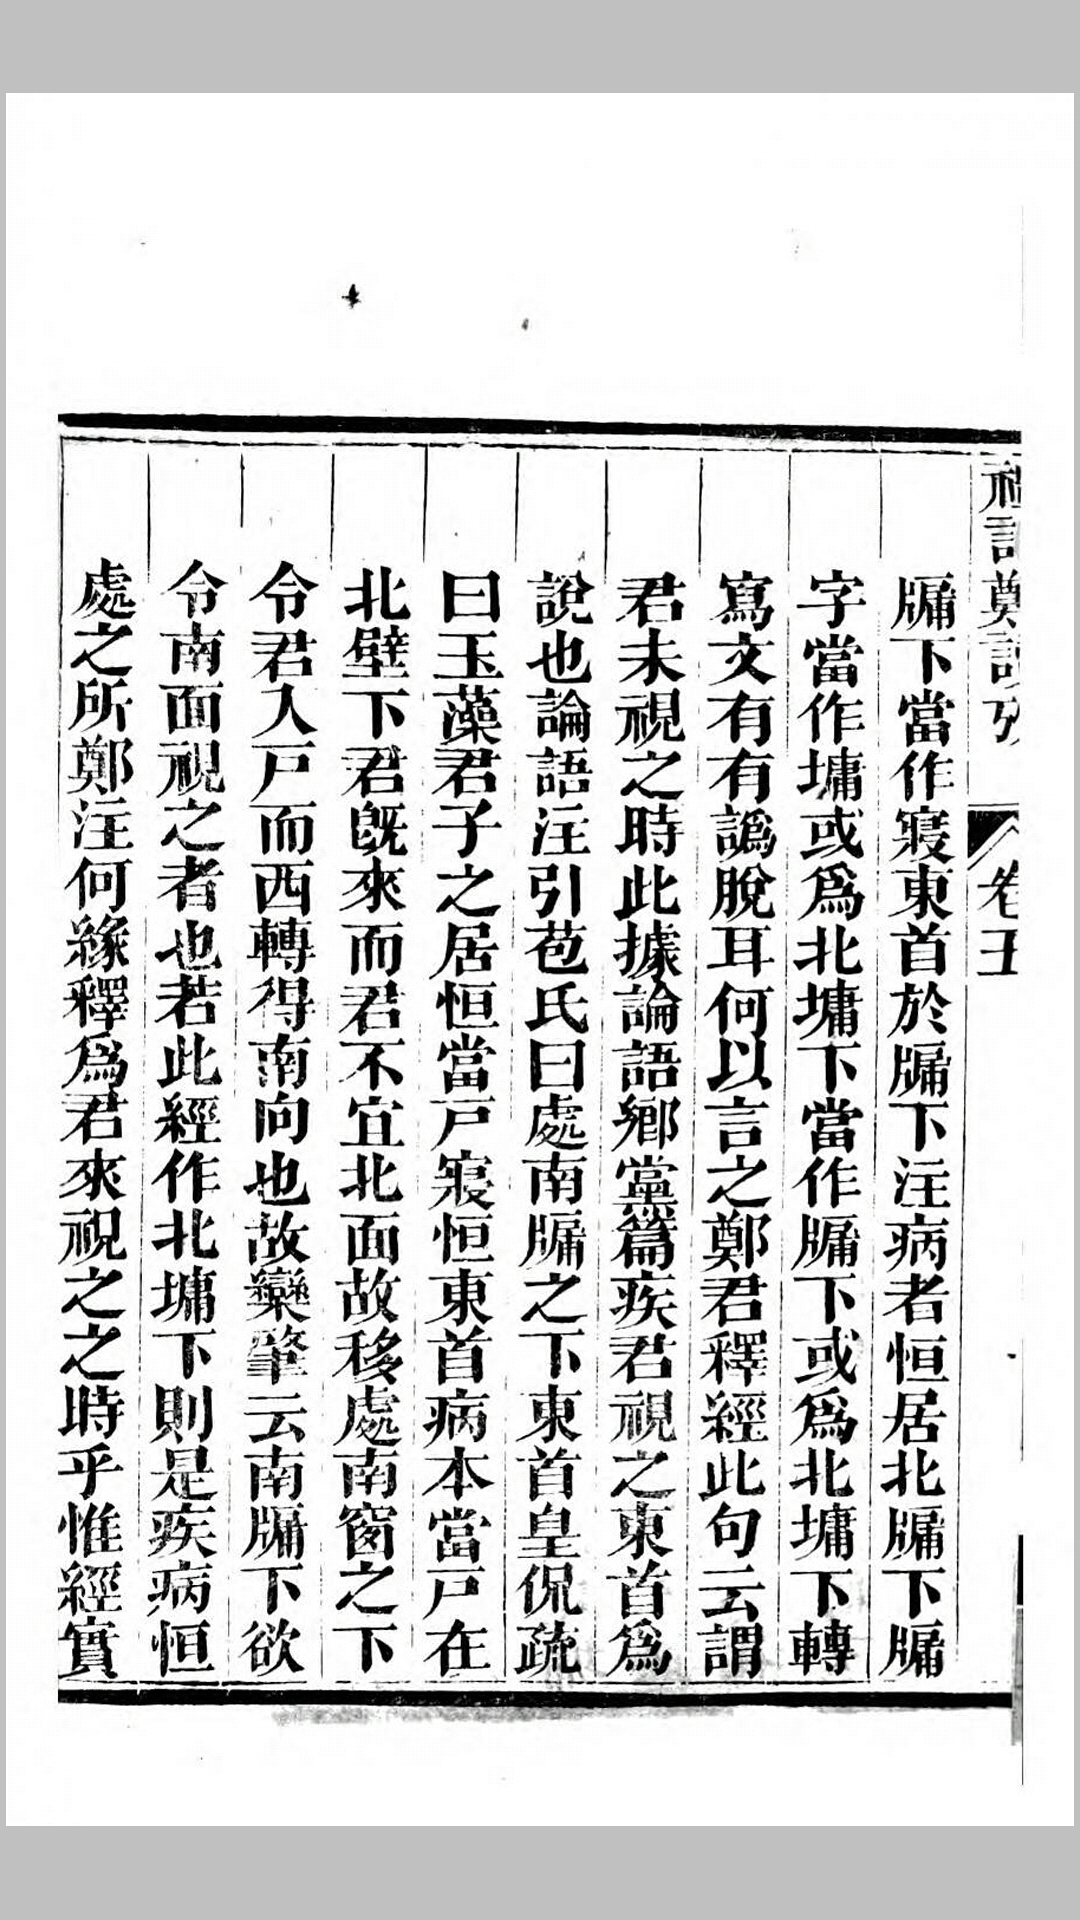 禮記鄭讀攷 卷五
牖下當作寢東首於牖下注病者恒居北牖下牖
字當作墉或爲北墉下當作牖下或爲北墉下轉
寫文有有譌脫耳何以言之鄭君釋經此句云謂
君未視之時此據論語鄉黨篇疾君視之東首爲
說也論語注引苞氏曰處南牖之下東首皇侃疏
曰玉藻君子之居恒當戸寢恒東首病本當戸在
北壁下君旣來而君不宜北面故移處南窗之下
令君入戸而西轉得南向也故欒肇云南牖下欲
令南面視之者也若此經作北墉下則是疾病恒
處之所鄭注何緣釋爲君來視之之時乎惟經實